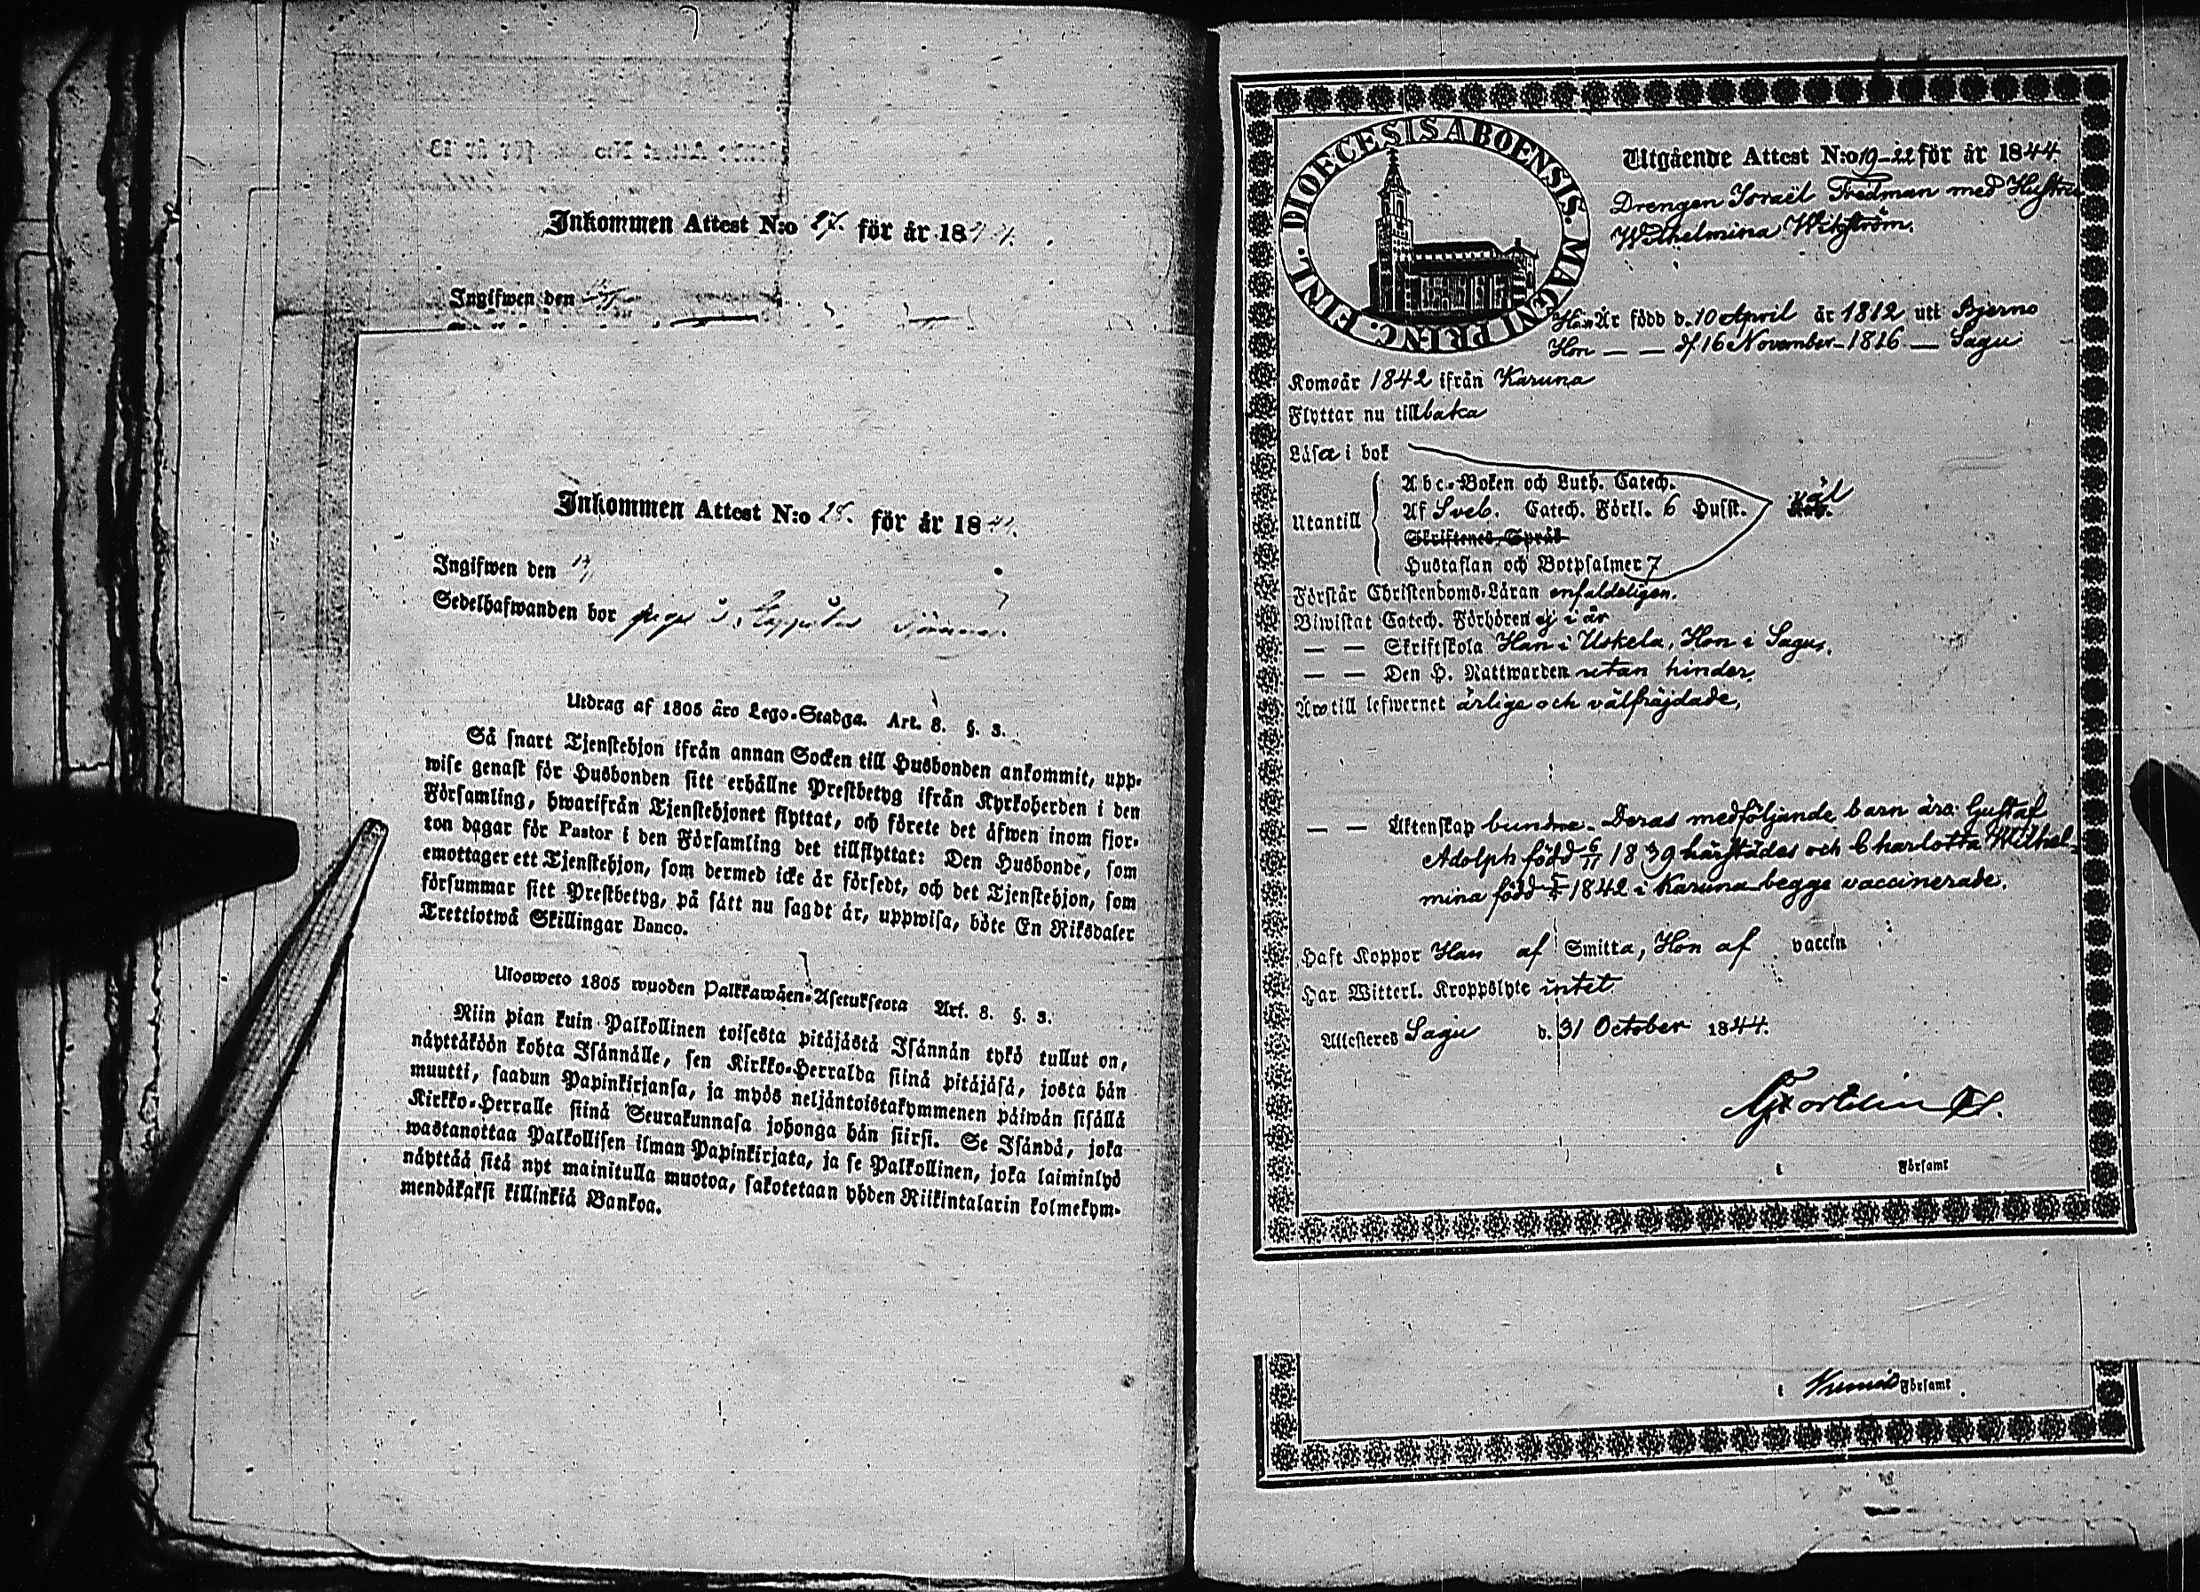 Inkommen Attest N:o 27. för år 1844.
Ingifwen den
Inkommen Attest N:o 28. för år 1844.
Ingifwen den
Sedelhafwanden bor
Utdrag af 1805 års Lego-Stadga. Art. 8. §. 3.
Så snart Tjenstehjon ifrån annan Socken till Husbonden ankommit, upp-
wise genast för Husbonden sitt erhållne Prestbetyg ifrån Kyrkoherden i den
Församling, hwarifrån Tjenstehjonet flyttat, och förete det äfwen inom fjor-
ton dagar för Pastor i den Församling det tillflyttat: Den Husbonde, som
emottager ett Tjenstehjon, som dermed icke är försedt, och det Tjenstehjon, som
försummar sitt Prestbetyg, på sätt nu sagdt är, uppwisa, böte En Riksdaler
Trettiotwå Skillingar Banco.
Ulosweto 1805 wuoden Palkkawäen-Asetuksesta Art. 8. §. 3.
Niin pian kuin Palkollinen toisesta pitäjästä Isännän tykö tullut on,
näyttäköön kohta Isännälle, sen Kirkko-Herralda siinä pitäjäsä, josta hän
muutti, saadun Papinkirjansa, ja myös neljäntoistakymmenen päiwän sisällä
Kirkko-Herralle siinä Seurakunnasa johonga hän siirsi. Se Isändä, joka
wastanottaa Palkollisen ilman Papinkirjata, ja se Palkollinen, joka laiminlyö
näyttää sitä nyt mainitulla muotoa, sakotetaan yhden Riikintalarin kolmekym-
mendäkaksi killinkiä Bankoa.
DIOECESIS ABOENSIS. MAGNI PRINC. FINL.
Utgående Attest N:o 19-22 för år 1844
Drengen Israël Fredman med Hustru
Wilhelmina Wikström.
Han Är född d. 10 April år 1812 uti Bjerno
Hon — — d 16 November - 1816 — Sagu
Kom år 1842 ifrån Karuna
Flyttar nu tillbaka
Läsa i bok
Utantill
Abc-Boken och Luth. Catech.
Af Sveb. Catech. Förkl. 6 Husst.
Skriftenes Språk
Hustaflan och Botpsalmer 7
Förstår Christendoms-Läran enfaldeligen.
Biwistat Catech. Förhören ej i år
— — Skriftskola Han i Uskela, Hon i Sagu.
— — Den H. Nattwarden utan hinder.
Äro till lefwernet ärlige och välfräjdade,
— — Äktenskap bundne. Deras medföljande barn äro: Gustaf
Adolph född 6/11 1839 härstädes och Charlotta Wilhel-
mina född 1842 i Karuna begge vaccinerade.
Haft Koppor Han af Smitta, Hon af vaccin
Har Witterl. Kroppslyte intet
Attesteres Sagu d. 31 October 1844.
i Församl
i Församl.